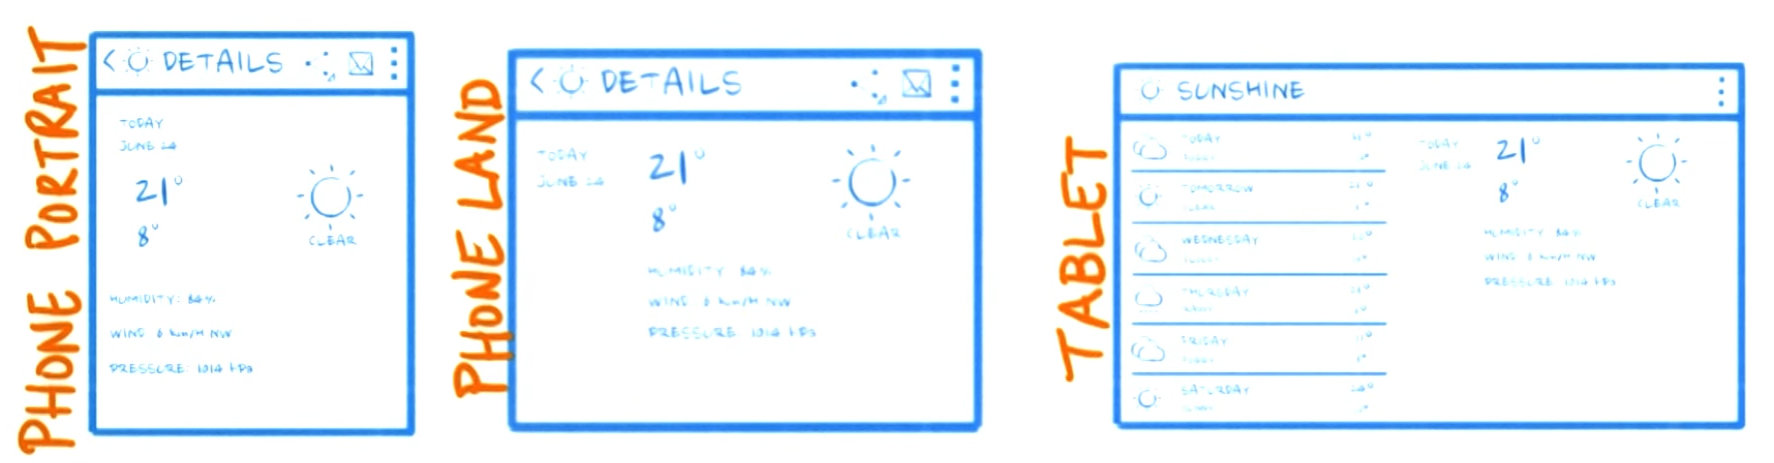 PHONE PORTRAIT
DETAILS
TODAY
JUNE 24
21°
8°
CLEAR
HUMIDITY: 84%
WIND 6 km/H NW
PRESSURE 1014 hPa
PHONE LAND
DETAILS
TODAY
JUNE 24
21°
8°
CLEAR
HUMIDITY 84%
WIND 6 km/H NW
PRESSURE 1014 hPa
TABLET
SUNSHINE
TODAY
TOMORROW
CLEAR
WEDNESDAY
THURSDAY
FRIDAY
SATURDAY
TODAY
JUNE 24
21°
8°
CLEAR
HUMIDITY 84%
WIND 6 km/H NW
PRESSURE 1014 hPa